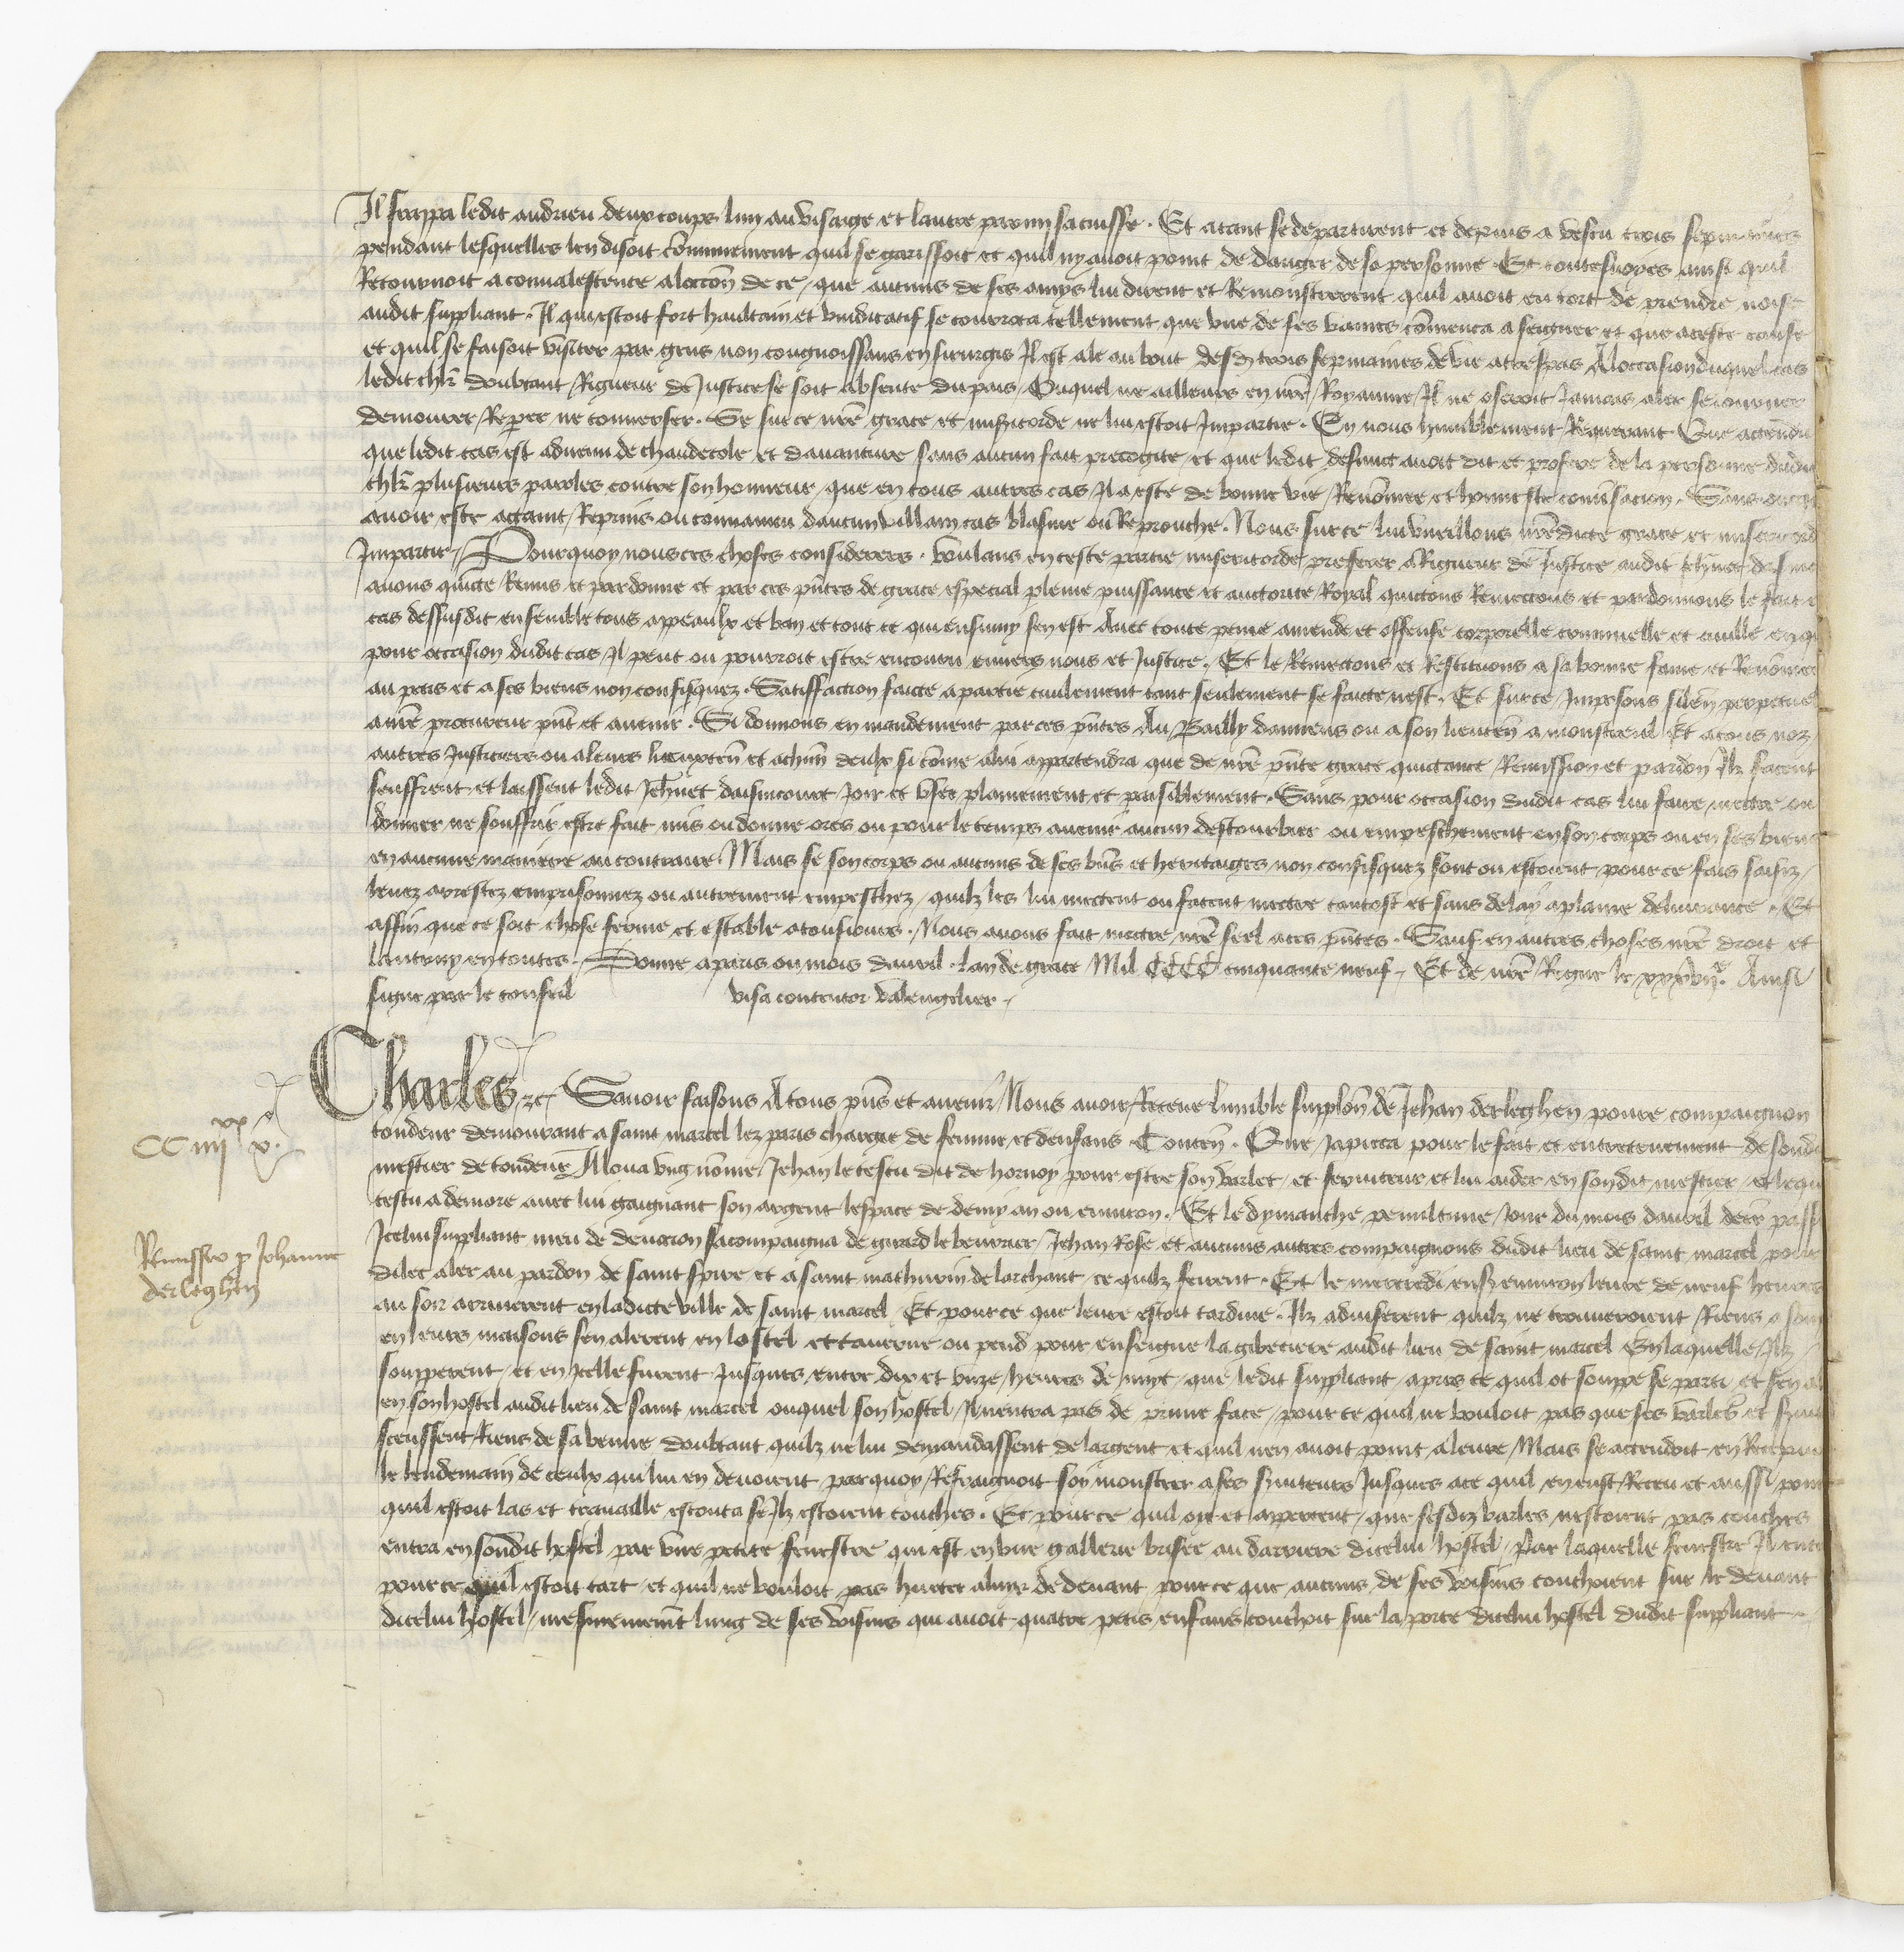 Il frappa ledit andrieu deux coups lun au visaige et lautre parmy sa cuisse . Et atant se departirent et depuis a vescu trois sepmaines
pendant lesquelles len disoit cōmunement quil se garissoit et quil ny auoit point de dangier de sa personne Et toutesuoyes ainsi quil
Retournoit a conualescence aloccōn de ce / que aucuns de ses amys lui dirent et Remonstrerent quil auoit eu tort de prendre noise
audit suppliant . Il qui estoit fort haultain et vindicatif se courouca tellement que vne de ses vaines cōmenca a seigner et que aceste cause
et quil se faisoit visiter par gens non congnoissans en sirurgie Il est ale au bout desd trois sepmaines de vie a trespas Aloccasion duquel cas
ledit Jehn̄ doubtant Rigueur de Justice se soit absente du pais / Ouquel ne ailleurs en nrē Royaume / Il ne oseroit Jamais aler seiourner
demourer Reperer ne conuerser . Se sur ce nrē grace et misericorde ne lui estoit Impartie . En nous humblement Requerant Que attendu
que ledit cas est aduenu de chaudecole et dauanture sans aucun fait precogite et que ledit deffunct auoit dit et profere de la personne dudit
Jehn̄ plusieurs paroles contre son honneur / que en tous autres cas Il a este de bonne vie Renōmee et honneste conuersacion . Sans oncques
auoir este attaint Reprins ou conuaincu daucun villain cas blasme ou Reprouche . Nous sur ce lui vueillons nrēdicte grace et misericorde
Impartir / Pourquoy nous ces choses considerees . voulans en ceste partie misericorde preferer a Rigueur de Justice audit Jehn̄et
auons quicte Remis et pardonne et par ces pn̄tes de grace especial pleine puissance et auctorite Royal quictons Remectons et pardonnons le fait et
cas dessusdit ensemble tous appeaulx et ban et tout ce qui ensuiuy sen est Auec toute peine amende et offense corporelle criminelle et ciuille en quoy
pour occasion dudit cas Il peut ou pourroit estre encouru enuers nous et Justice . Et le Remectons et Restituons a sa bonne fame et Renōmee
au pais et a ses biens non confisquez . Satisffaction faicte a partie ciuilement tant seulement se faicte nest . Et sur ce Imposons silen̄ perpetuel
a nrē procureur pn̄t et auenir . Si donnons en mandement par ces pn̄tes Au Bailly damiens ou a son lieuten̄ a monstreul Et a tous noz
autres Justiciers ou a leurs lieuxten̄ et achūn deulx si cōme alui appartendra que de nrē pn̄te grace quictance Remission et pardon Ilz facent
seuffrent et laissent ledit Jehn̄et daisincourt Joir et vser plainement et paisiblement . Sans pour occasion dudit cas lui faire mectre ou
donner ne souffrir estre fait mis ou donne ores ou pour le temps auenir aucun destourbier ou empeschement en son corps ou en ses biens
en aucune maniere au contraire . Mais se son corps ou aucuns de ses biēs et heritaiges non confisquez sont ou estoient pour ce fais saisiz
leuez arrestez emprisonnez ou autrement empeschez / quilz les lui mectent ou facent mectre tantost et sans delay a plaine deliurance . Et
affin que ce soit chose ferme et estable a tousiours . Nous auons fait mectre nrē seel a ces pn̄tes . Sauf en autres choses nrē droit et
lautruy en toutes . Donne a paris ou mois dauril . lan de grace Mil CCCC cinquante neuf / Et de nrē Regne le xxxvijᵉ. Ainsi
signe par le conseil visa contentor Valengelier
Charles &c Sauoir faisons A tous pn̄s et auenir / Nous auoir Receue lumble supplōn de Jehan derleghen poure compaignon
tondeur demourant a saint marcel lez paris chargie de femme et denfans Conten̄ . Que Japieca pour le fait et entretenement de sondit
mestier de tondeur Aloua vng nōme Jehan le testu dit de hornoy pour estre son varlet et seruiteur et lui aider en sondit mestier / et lequel
testu a demore auec lui gaignant son argent lespace de demy an ou enuiron . Et le dymanche penultime Jour du mois dauril derr̄ passe
Icelui suppliant meu de deuocion sacompaigna de girard le beuurier / Jehan Rose et aucuns autres compaignons dudit lieu de saint marcel pour
dilec aler au pardon de saint spire et a saint mathurin de larchant ce quilz firent . Et le mercredi ens̄ enuiron leure de neuf heures
au soir arriuerent en ladicte ville de saint marcel Et pour ce que leure estoit tardiue . Ilz aduiserent quilz ne trouueroient Riens a soupper
en leurs maisons sen alerent en lostel et tauerne ou pend pour enseigne la gibeciere audit lieu de saint marcel En laquelle Ilz
soupperent / et en Icelle furent Jusques entre dix et vnze heures de nuyt / que ledit suppliant / apres ce quil ot souppe se parti et sen ala
en son hostel audit lieu de saint marcel ouquel son hostel Il nentra pas de prime face / pour ce quil ne vouloit pas que ses varletz et
sceussent Riens de sa venue doubtant quilz ne lui demandassent de largent et quil nen auoit point a leure / Mais se attendoit en Receuoir
le lendemain de ceulx qui lui en deuoient parquoy Reffraignoit soy monstrer a ses s̄uiteurs Jusques a ce quil en eust Receu et aussi pour ce
quil estoit las et trauaille escouta se Ilz estoient couches . Et pour ce quil oyt et apperceut que sesdiz varles nestoient pas couches
entra en sondit hostel par vne petite fenestre qui est en vne gallerie brisee au darriere dicelui hostel / Par laquelle fenestre Il entra
pour ce quil estoit tart et quil ne vouloit pas hurter a luys de deuant pour ce que aucuns de ses voisins couchoient sur le deuant
dicelui hostel / mesmement lung de ses voisins qui auoit quatre petis enfans couchoit sur la porte dicelui hostel dudit suppliant
CC iiijˣˣ x.
Remissio p Johanne
derleghen